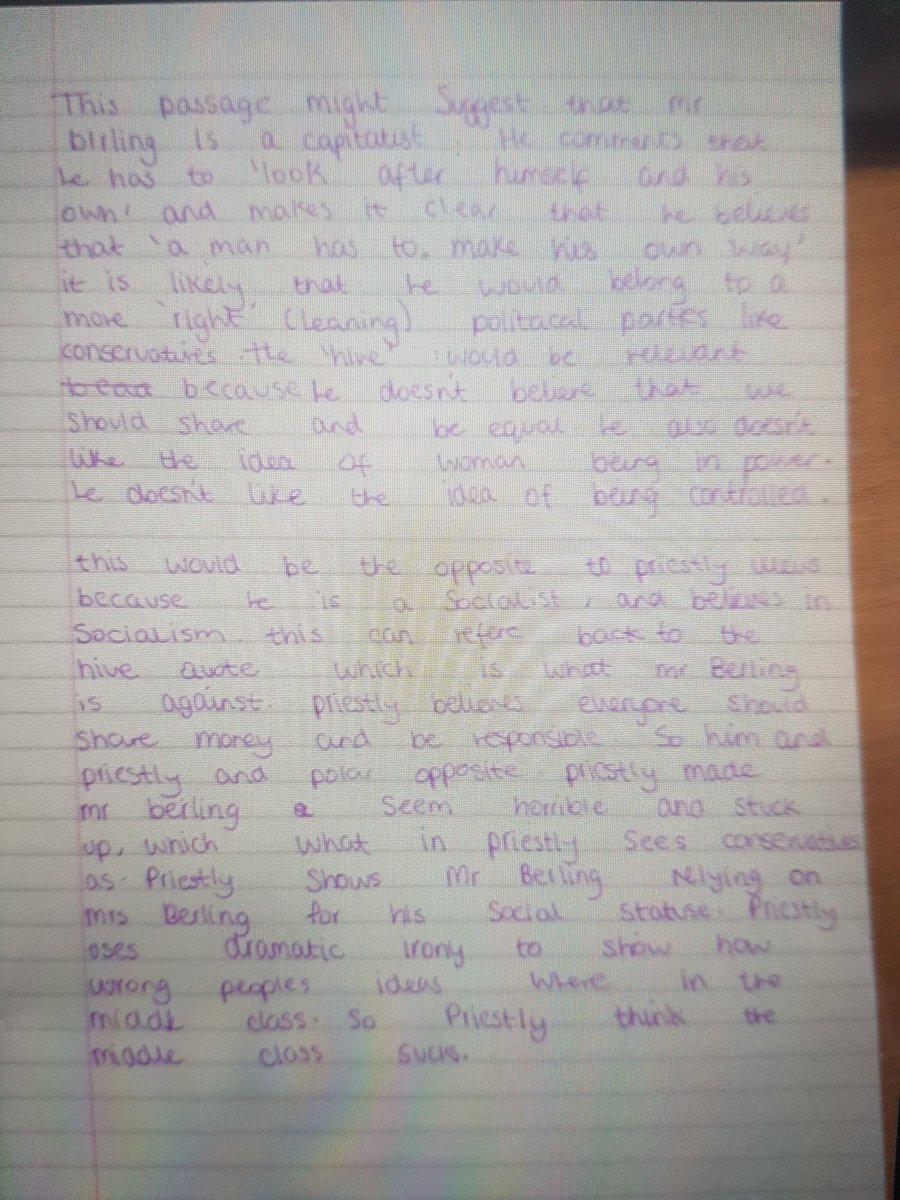 This passage might Suggest that mr
birling is a capitalist. He comments that
he has to 'look after himself and his
own' and makes it clear that he believes
that 'a man has to make his own way'
it is likely that he would belong to a
more 'right' (leaning) politacal parties like
conservatives the 'hive' would be relevant
because he doesn't believe that we
should share and be equal. he also doesn't
like the idea of woman being in power.
he doesn't like the idea of being controlled.
this would be the opposite to priestly views
because he is a Socialist, and believes in
Socialism. this can refere back to the
hive quote which is what mr Berling
is against. priestly believes everyone should
share money and be responsible. So him and
priestly and polar opposite. priestly made
mr berling a seem horrible and stuck
up, which what in priestly sees conservatives
as. Priestly shows Mr Berling relying on
mrs Berling for his Social Statuse. Priestly
oses dramatic irony to show how
wrong peoples ideas where in the
middle class. So Priestly think the
middle class sucks.